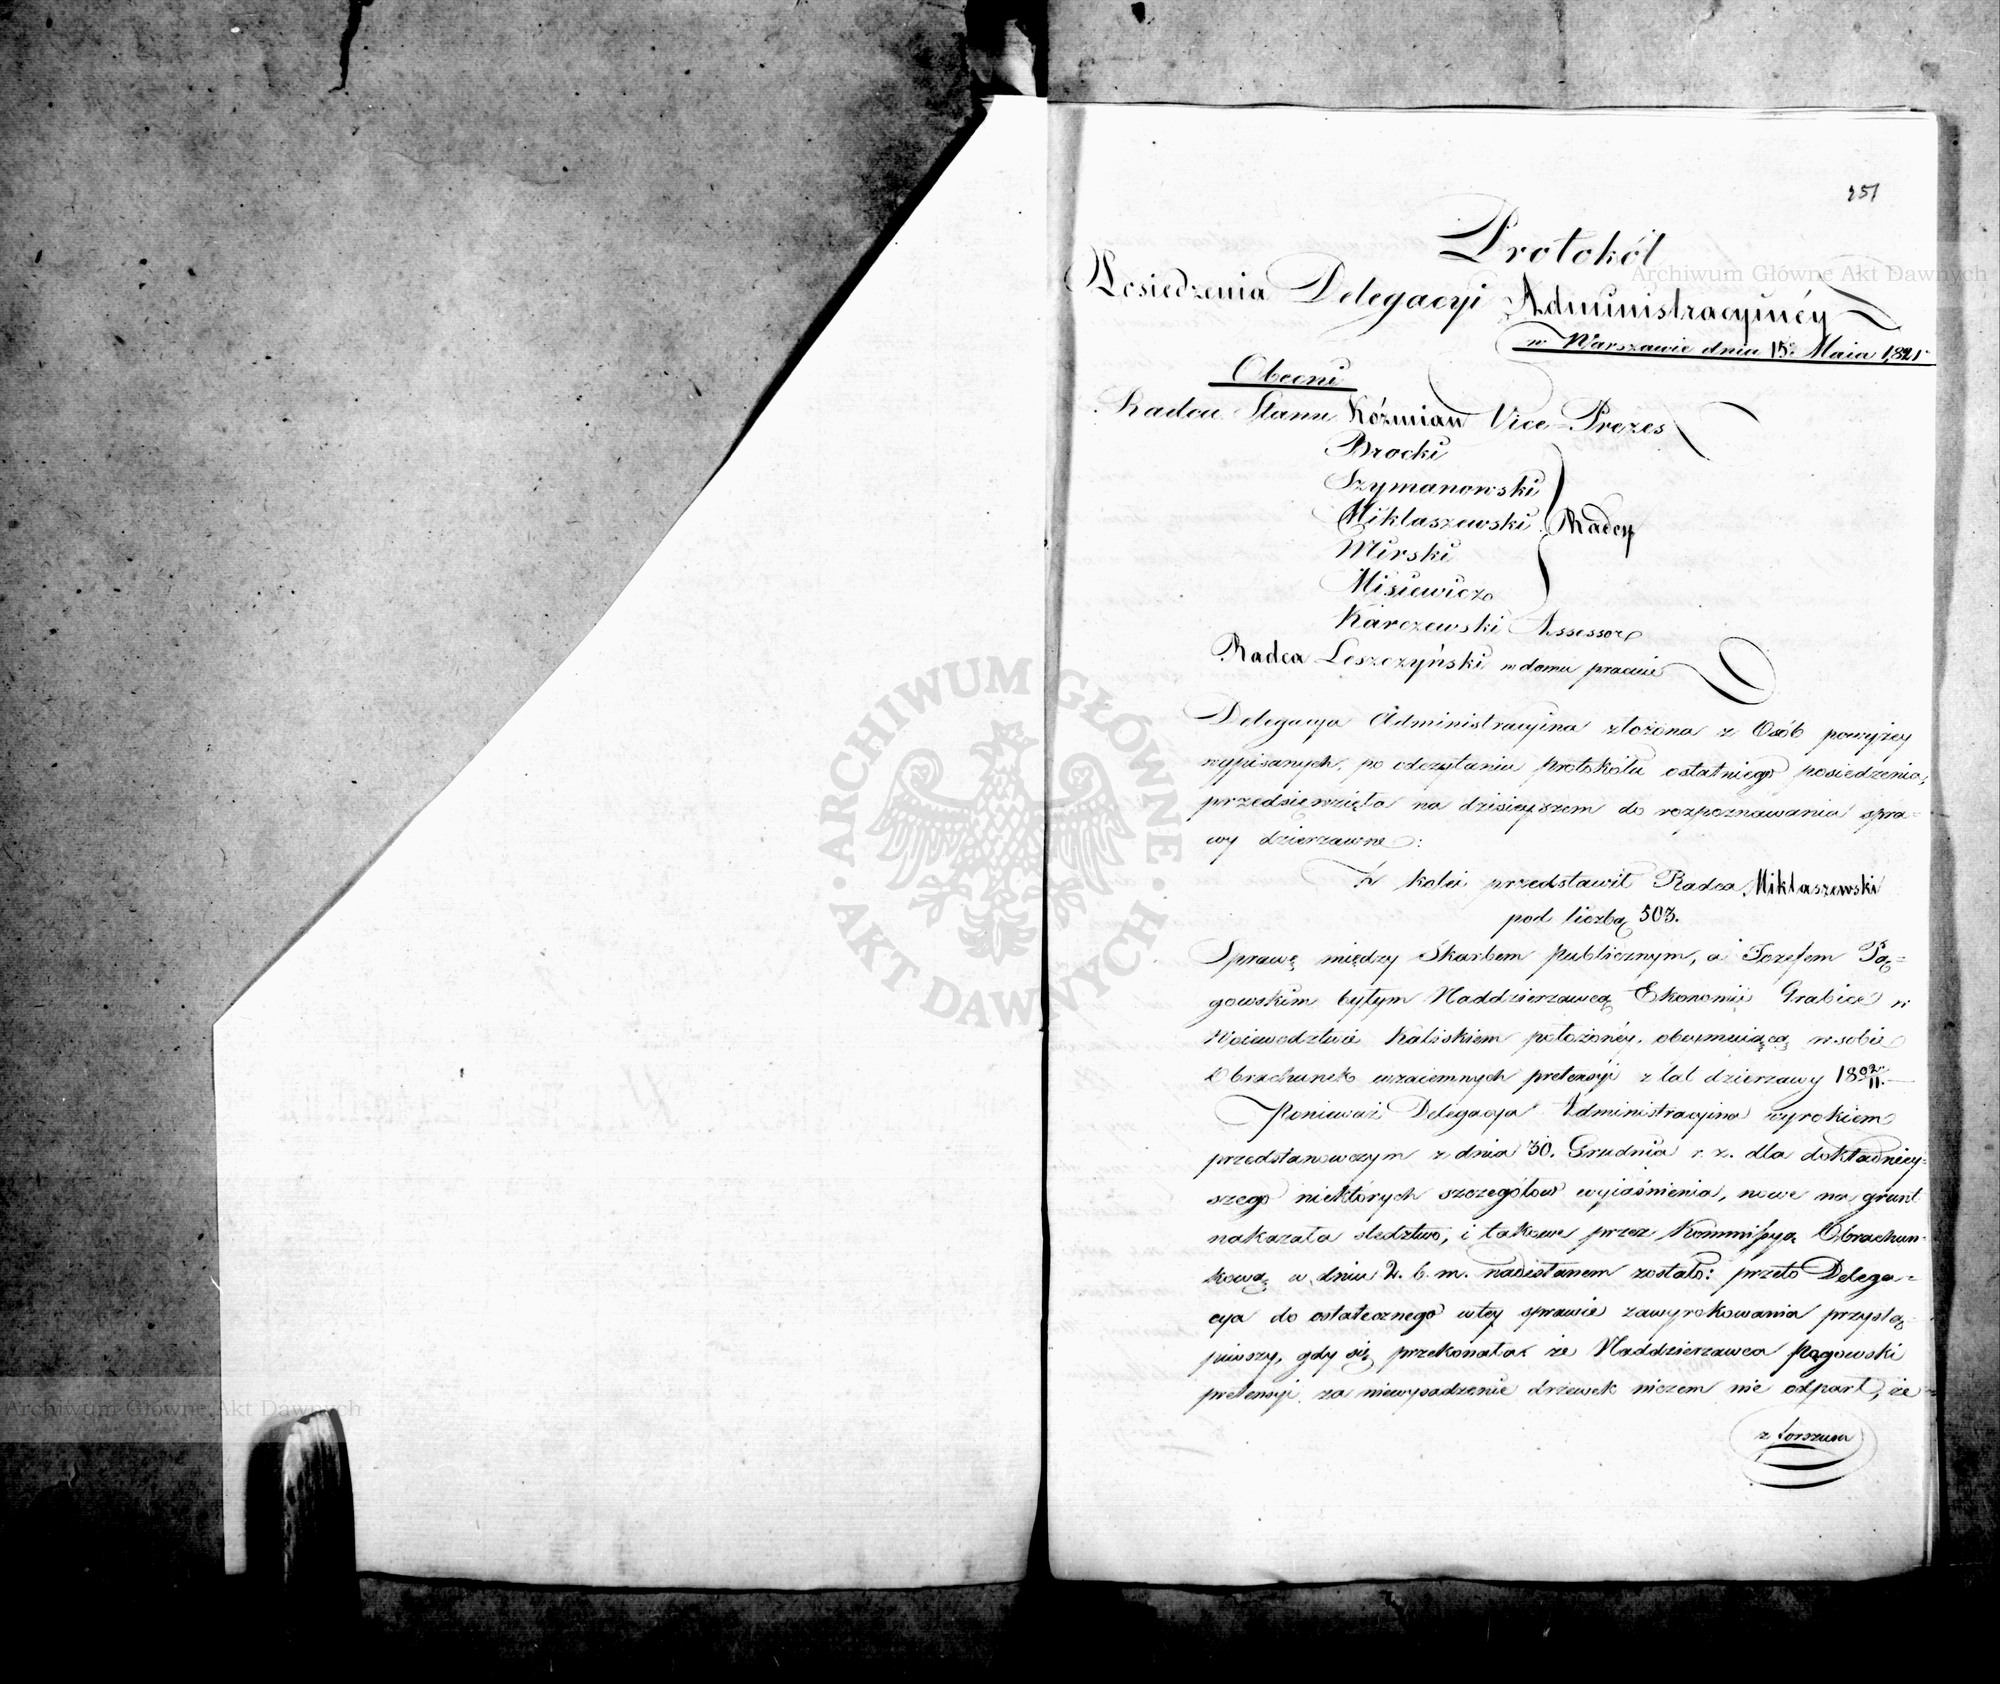 251
Protokół
Posiedzenia Delegacyi Administracyinéy
w Warszawie dnia 15. Maia 1821.
Obecni
Radca Stanu Kózmian Vice-Prezes
Brocki
Szymanowski
Miklaszewski Radcy
Mirski
Misiewicz
Karczewski Assessor
Radca Leszczyński w domu pracuie
Delegacya Administracyina złożona z Osób powyżey
wypisanych, po odczytaniu protokółu ostatniego posiedzenia,
przedsięwzięła na dzisieyszem do rozpoznawania spra=
wy dzierzawne:
Z kolei przedstawił Radca Miklaszewski
pod liczbą 503.
Sprawę między Skarbem publicznym, a Jozefem Pą=
gowskim byłym Naddzierzawcą Ekonomii Grabice w
Woiewodztwie Kaliskiem położonéy, obeymuiącą w sobie
Obrachunek wzaiemnych pretensyi z lat dzierzawy
Ponieważ Delegacya Administracyina wyrokiem
przedstanowczym z dnia 30. Grudnia r. z. dla dokładniey=
szego niektórych szczegółow wyiaśnienia, nowe na grunt
nakazała śledztwo, i takowe przez Kommissyą Obrachun=
kową w dniu 2. b. m. nadesłanem zostało: przeto Delega=
cya do ostatecznego w tey sprawie zawyrokowania przystą=
piwszy, gdy się przekonała że Naddzierzawca Pągowski
pretensyi za niewysadzenie drzewek niczem nie odparł, że
ARCHIWUM GŁÓWNE · AKT DAWNYCH ·
Archiwum Główne Akt Dawnych
Archiwum Główne Akt Dawnych